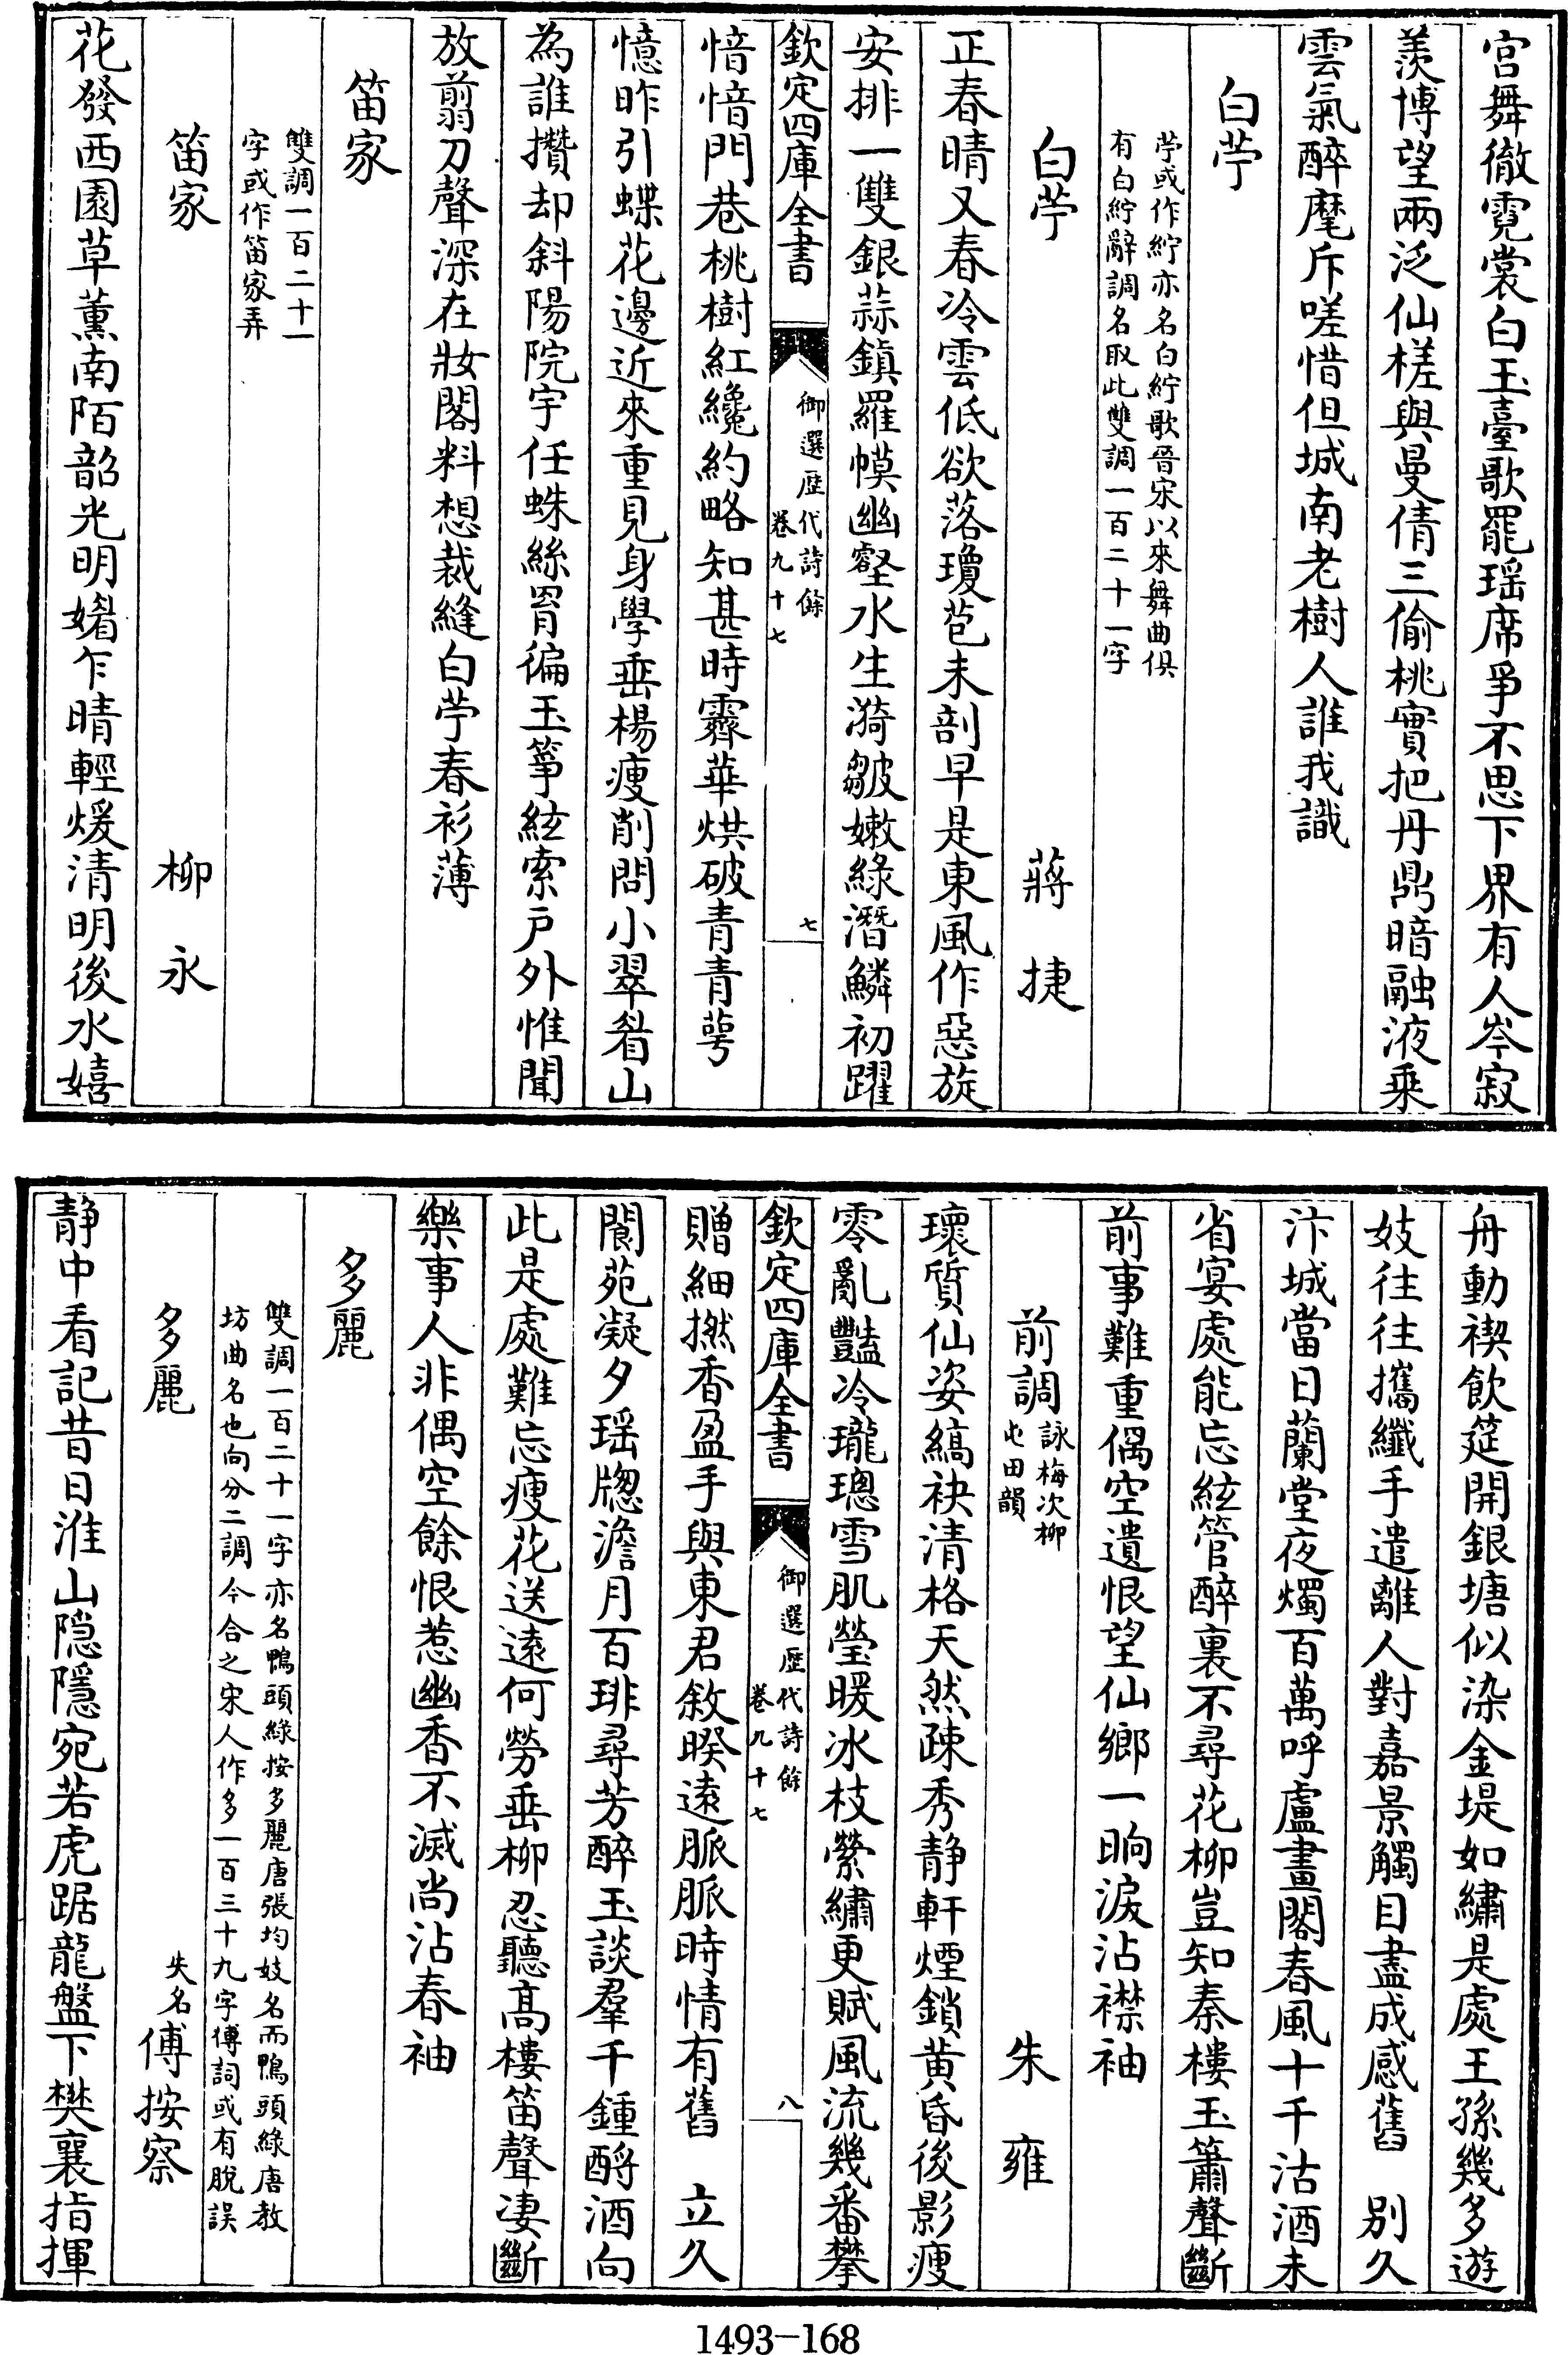 宮舞徹霓裳白玉臺歌罷瑶席爭不思下界有人岑寂
羨博望兩泛仙槎與曼倩三偷桃實把丹鼎暗融液乘
雲氣醉麾斥嗟惜但城南老樹人誰我識
白苧
苧或作紵亦名白紵歌晉宋以來舞曲俱
有白紵辭調名取此雙調一百二十一字
白苧
蔣捷
正春晴又春冷雲低欲落瓊苞未剖早是東風作惡旋
安排一雙銀蒜鎮羅幙幽壑水生漪皺嫩綠潛鱗初躍
欽定四庫全書
御選歴代詩餘
卷九十七
七
愔愔門巷桃樹紅纔約略知甚時霽華烘破青青萼
憶昨引蝶花邊近來重見身學垂楊瘦削問小翠眉山
為誰攢却斜陽院宇任蛛絲罥徧玉箏絃索户外惟聞
放翦刀聲深在妝閣料想裁縫白苧春衫薄
笛家
雙調一百二十一
字或作笛家弄
笛家
柳永
花發西園草薰南陌韶光明媚乍晴輕煖清明後水嬉
舟動禊飲筵開銀塘似染金堤如繡是處王孫幾多遊
妓往往攜纖手遣離人對嘉景觸目盡成感舊　别久
汴城當日蘭堂夜燭百萬呼盧畫閣春風十千沽酒未
省宴處能忘絃管醉裏不尋花柳豈知秦樓玉簫聲斷
前事難重偶空遺恨望仙鄉一晌淚沾襟袖
前調
詠梅次柳
屯田韻
朱雍
瓌質仙姿縞袂清格天然疎秀静軒煙鎖黄昏後影瘦
零亂豔冷瓏璁雪肌瑩暖冰枝縈繡更賦風流幾番攀
欽定四庫全書
御選歴代詩餘
卷九十七
八
贈細撚香盈手與東君敘暌遠脈脈時情有舊　立久
閬苑凝夕瑶牕澹月百琲尋芳醉玉談羣千鍾酹酒向
此是處難忘瘦花送遠何勞垂柳忍聽髙樓笛聲凄斷
樂事人非偶空餘恨惹幽香不滅尚沾春袖
多麗
雙調一百二十一字亦名鴨頭綠按多麗唐張均妓名而鴨頭綠唐教
坊曲名也向分二調今合之宋人作多一百三十九字傅詞或有脫誤
多麗
失名
傅按察
静中看記昔日淮山隐隱宛若虎踞龍盤下樊襄指揮
1493—168